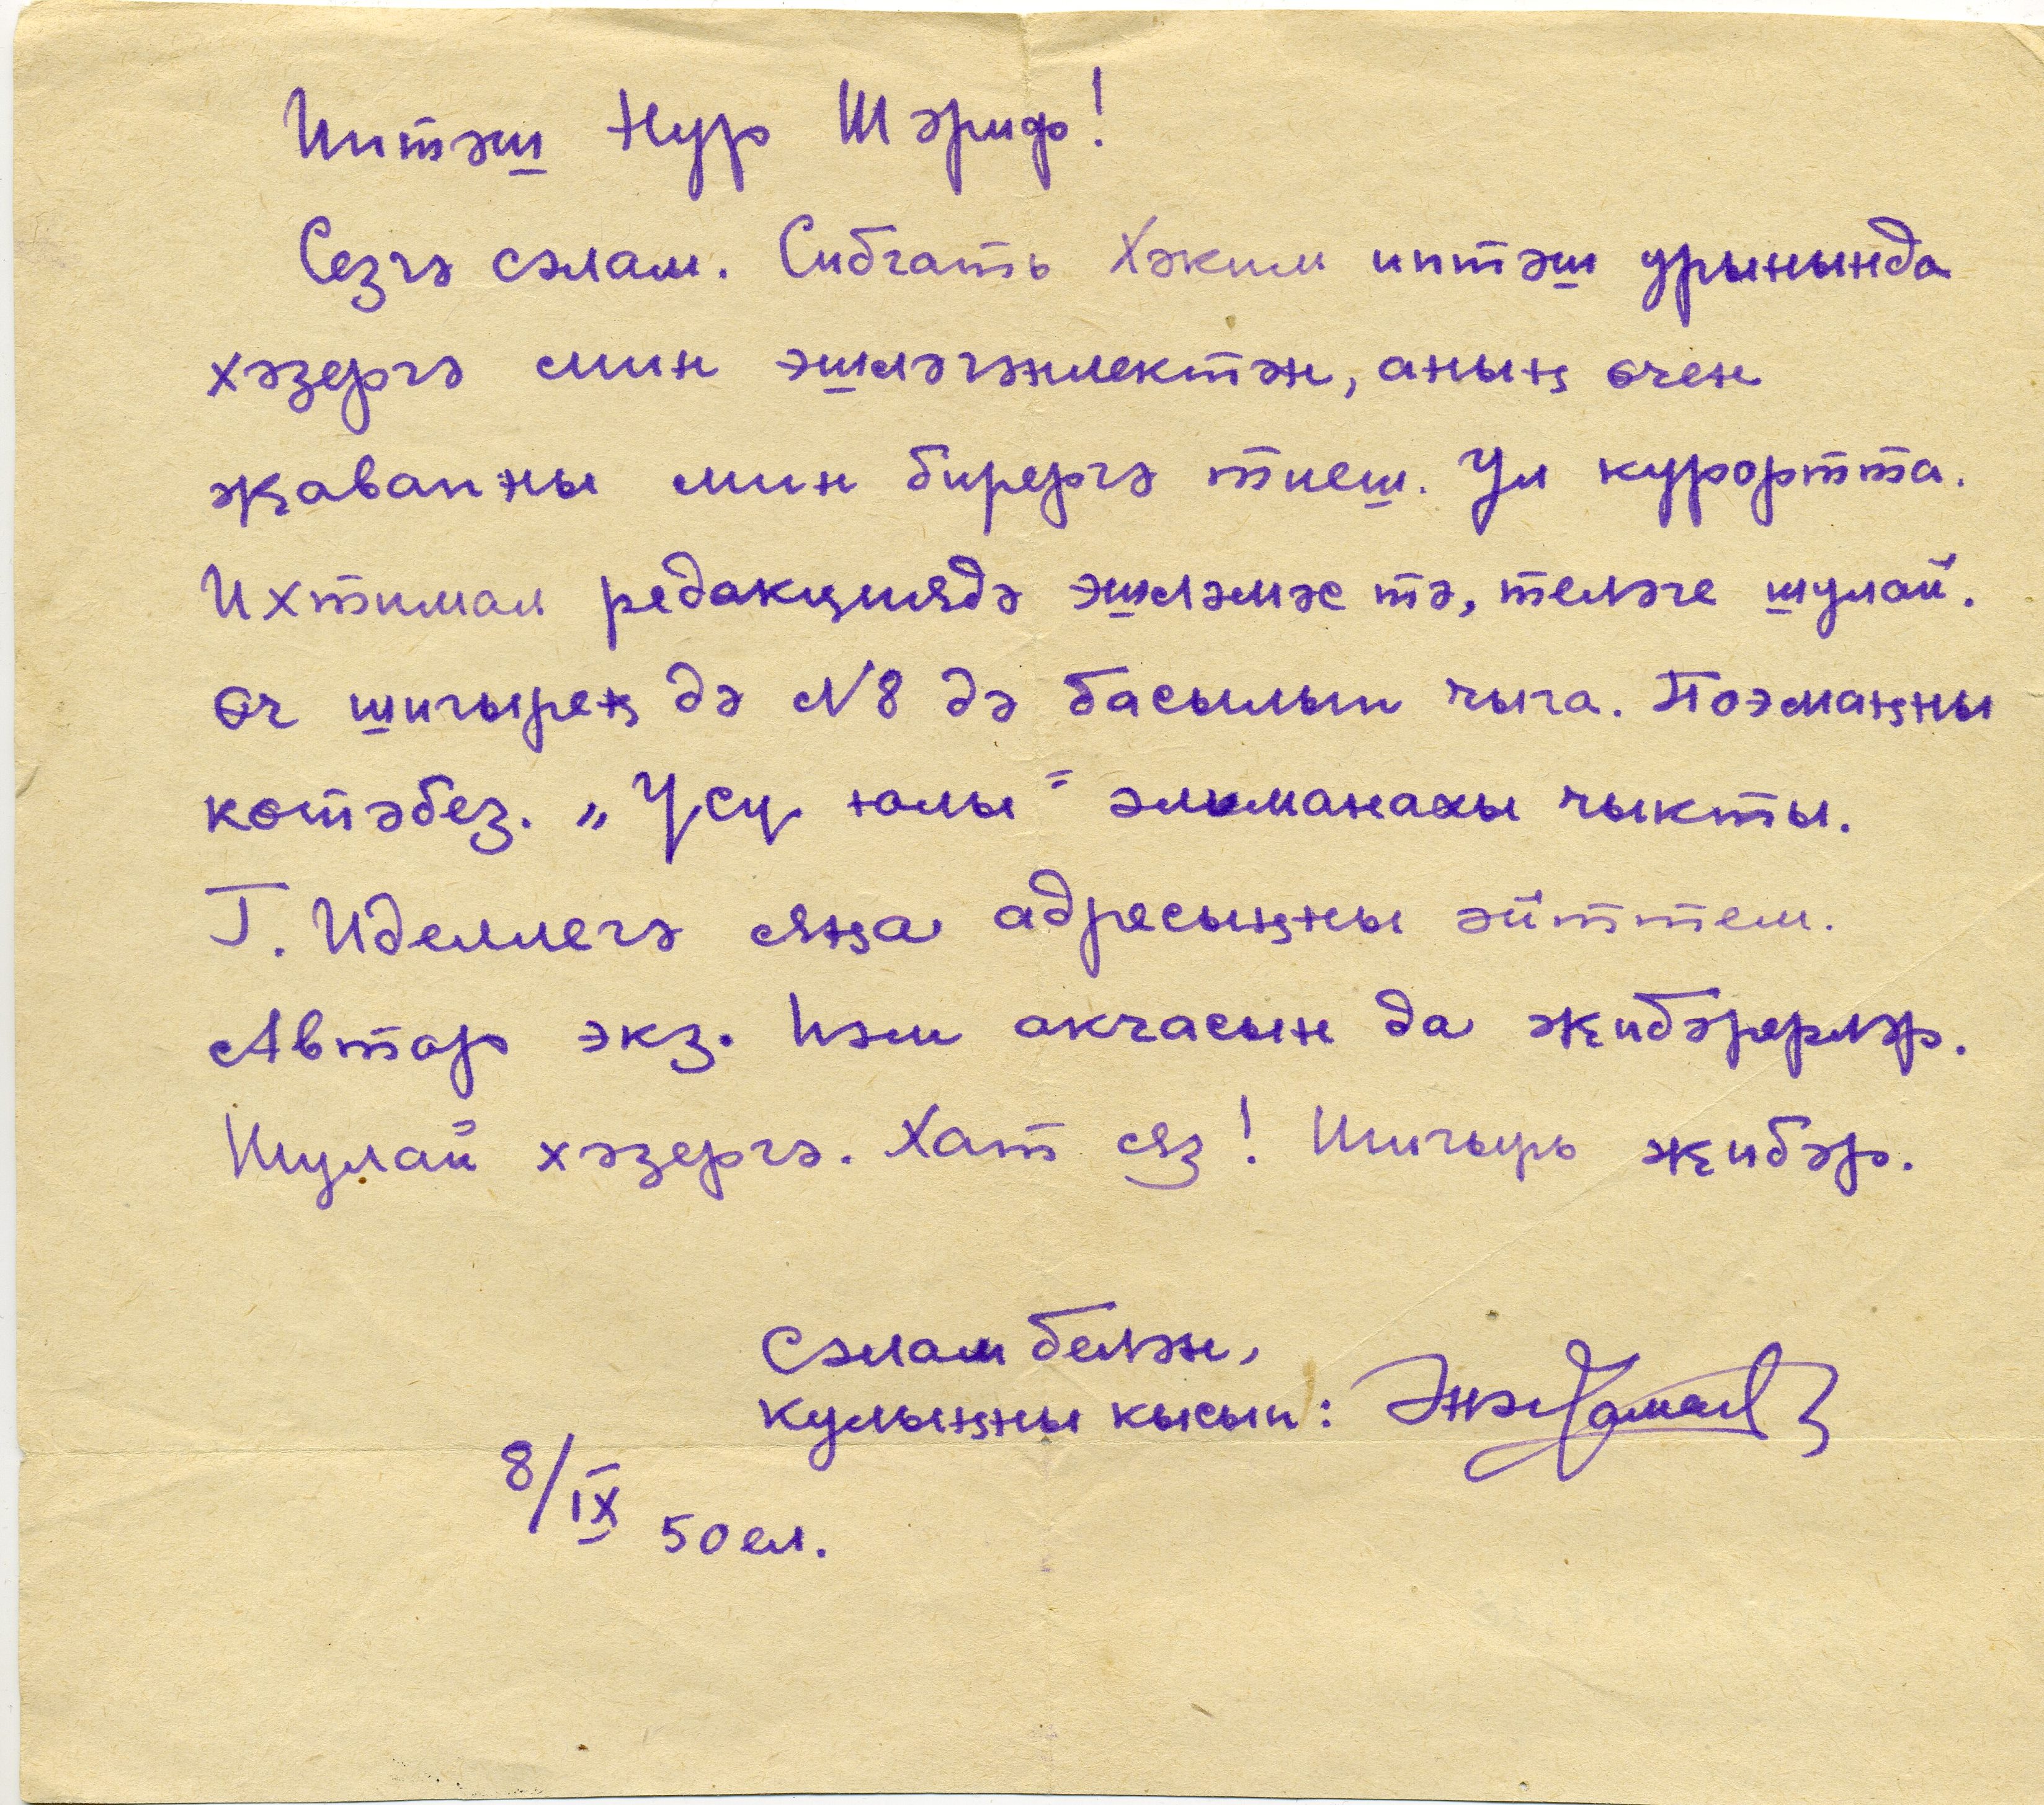 Иптәш Нур Шәриф!
Сезгә сәлам. Сибгать Хәким иптәш урынында
хәзергә мин эшләгәнлектән, аның өчен
җавапны мин бирергә тиеш. Ул курортта.
Ихтимал редакциядә эшләмәс тә, теләге шулай.
Өч шигырең дә N8 дә басылып чыга. Поэмаңны
көтәбез. „Үсү юлы" әльманахы чыкты.
Г. Иделлегә яңа адресыңны әйттем.
Автор экз. һәм акчасын да җибәрерләр.
Шулай хәзергә. Хат яз! Шигырь җибәр.
Сәлам белән,
кулыңны кысып:
8/IX 50 ел.